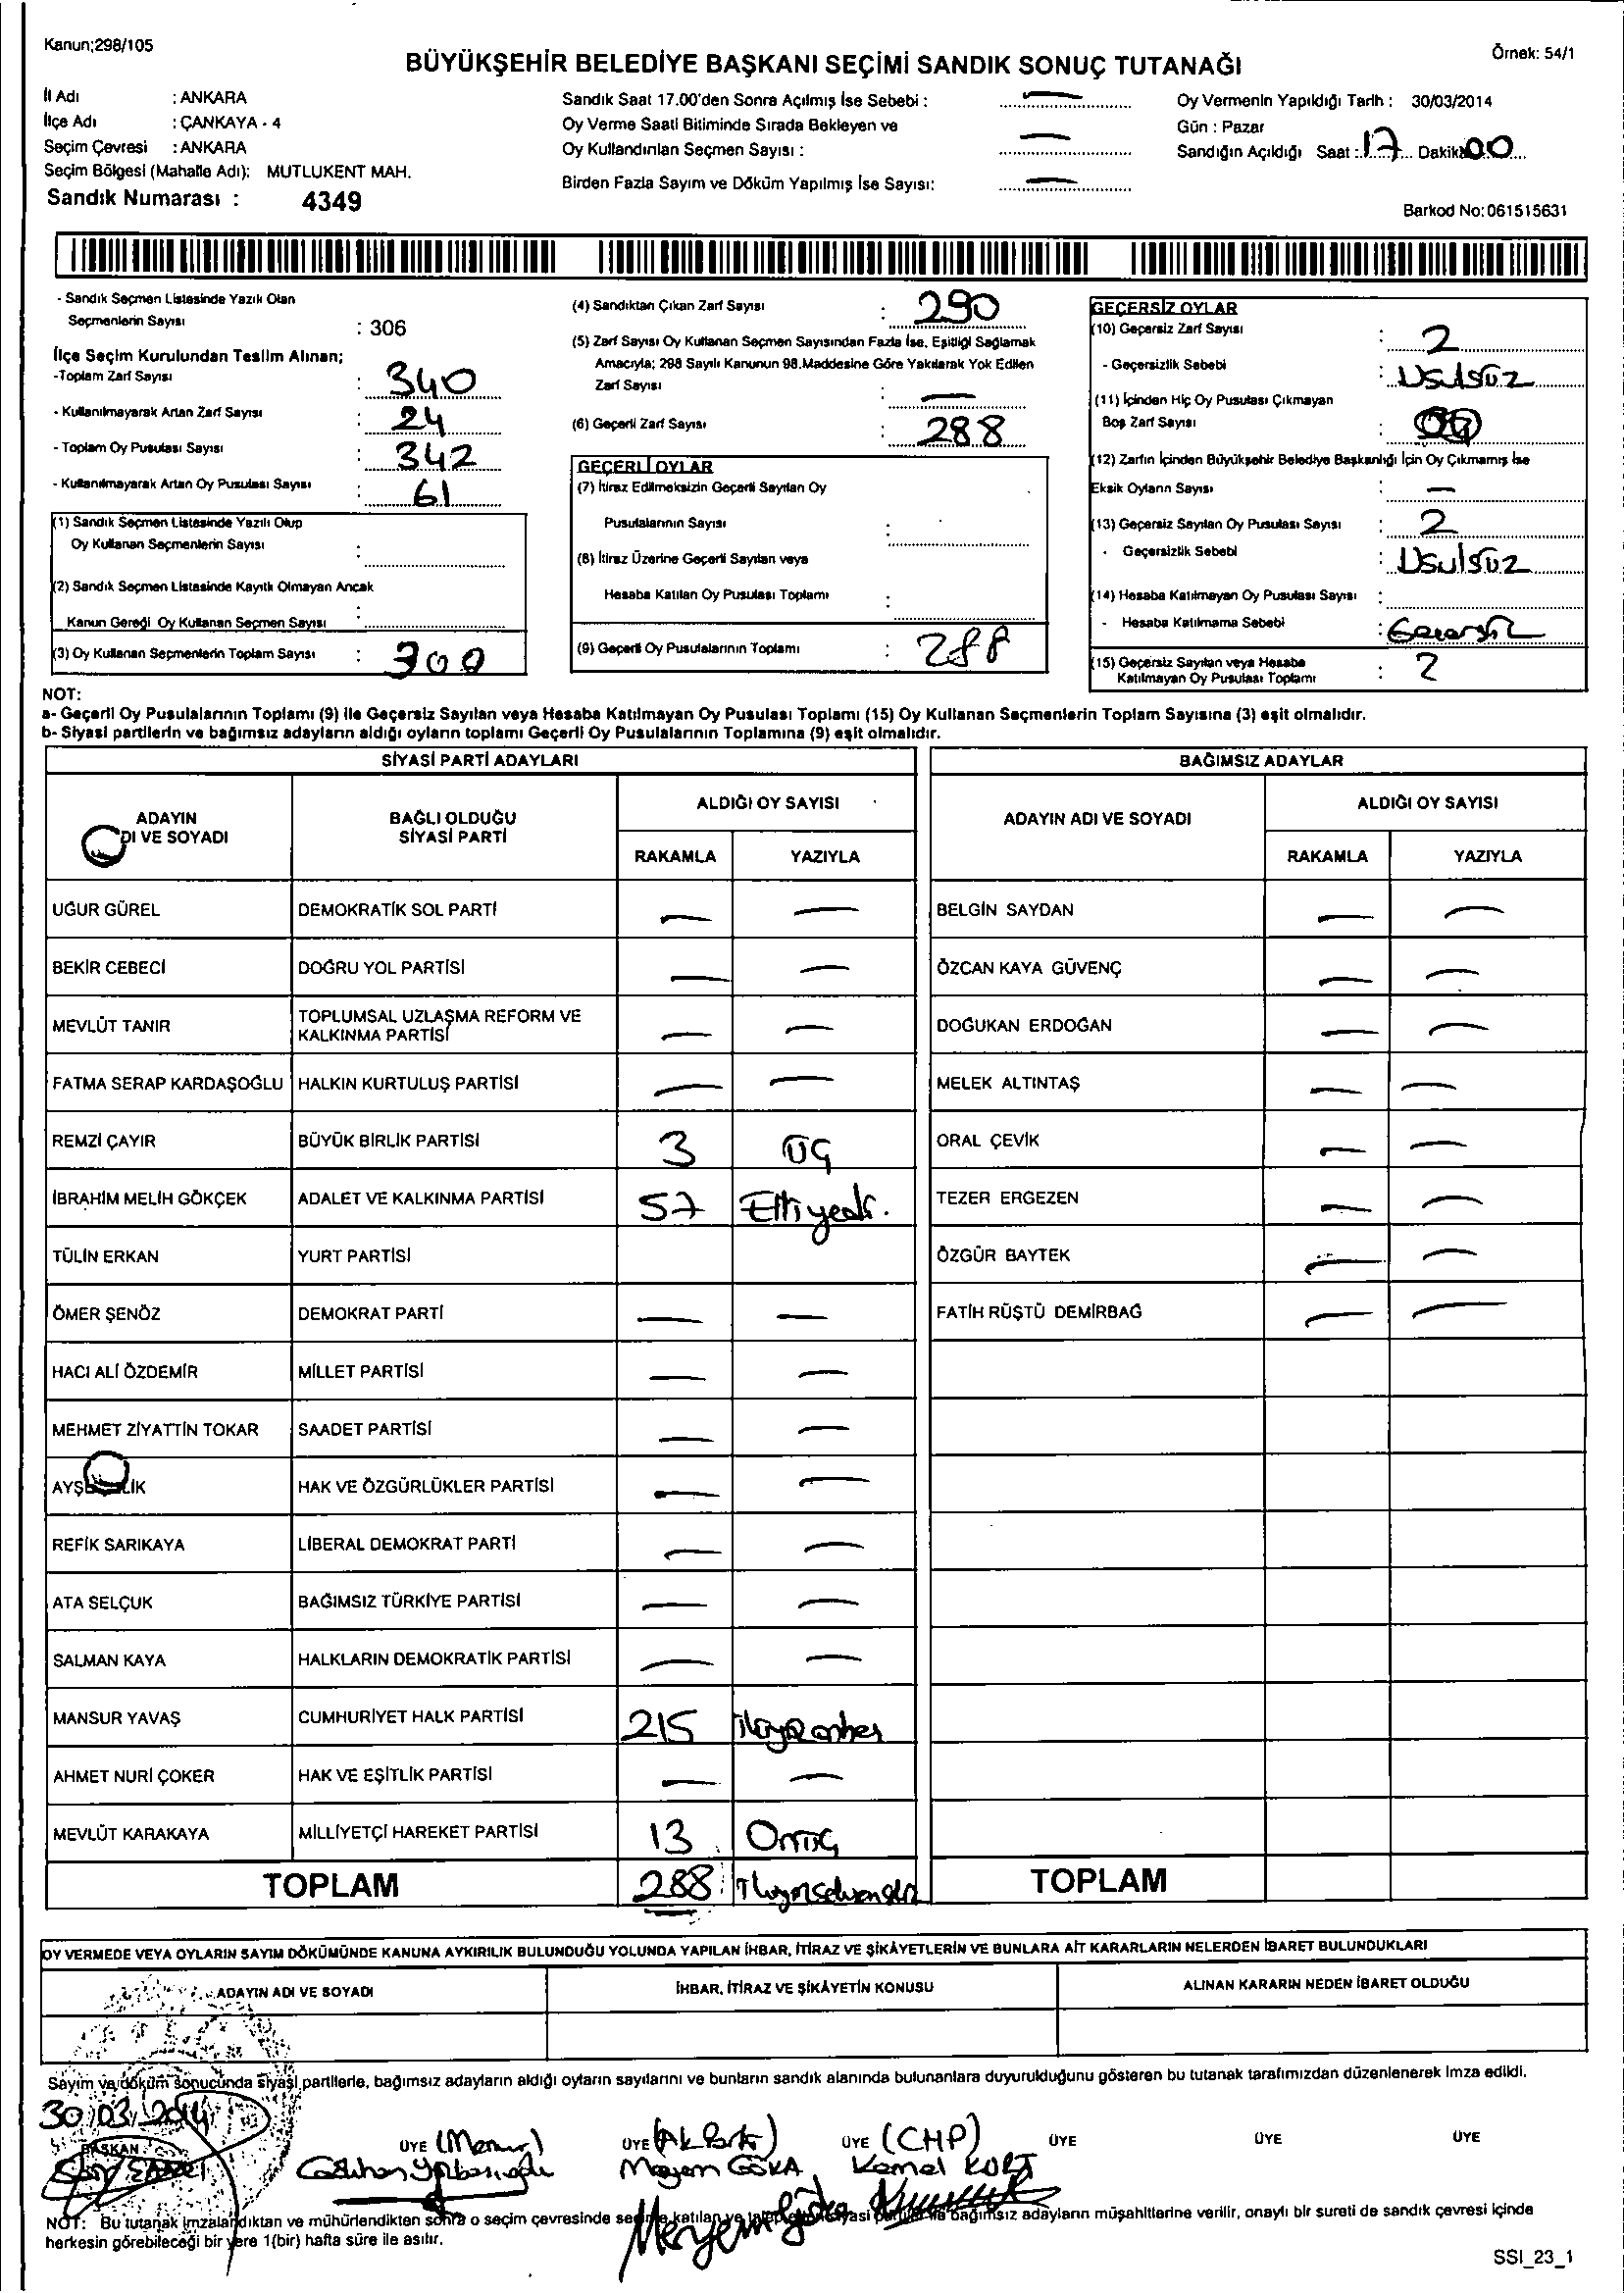 Kanun;298/105
BÜYÜKŞEHİR BELEDİYE BAŞKANI SEÇİMİ SANDIK SONUÇ TUTANAĞI
Örnek: 54/1
İl Adı : ANKARA
İlçe Adı : ÇANKAYA - 4
Seçim Çevresi : ANKARA
Seçim Bölgesi (Mahalle Adı): MUTLUKENT MAH.
Sandık Numarası : 4349
Sandık Saat 17.00'den Sonra Açılmış İse Sebebi : —
Oy Verme Saati Bitiminde Sırada Bekleyen ve
Oy Kullandırılan Seçmen Sayısı : —
Birden Fazla Sayım ve Döküm Yapılmış İse Sayısı: —
Oy Vermenin Yapıldığı Tarih : 30/03/2014
Gün : Pazar
Sandığın Açıldığı Saat : 17 Dakika 00
Barkod No: 061515631
- Sandık Seçmen Listesinde Yazılı Olan
Seçmenlerin Sayısı : 306
İlçe Seçim Kurulundan Teslim Alınan;
-Toplam Zarf Sayısı : 340
- Kullanılmayarak Artan Zarf Sayısı : 24
- Toplam Oy Pusulası Sayısı : 342
- Kullanılmayarak Artan Oy Pusulası Sayısı : 61
(1) Sandık Seçmen Listesinde Yazılı Olup
Oy Kullanan Seçmenlerin Sayısı :
(2) Sandık Seçmen Listesinde Kayıtlı Olmayan Ancak
Kanun Gereği Oy Kullanan Seçmen Sayısı :
(3) Oy Kullanan Seçmenlerin Toplam Sayısı : 300
(4) Sandıktan Çıkan Zarf Sayısı : 290
(5) Zarf Sayısı Oy Kullanan Seçmen Sayısından Fazla İse, Eşitliği Sağlamak
Amacıyla; 298 Sayılı Kanunun 98.Maddesine Göre Yakılarak Yok Edilen
Zarf Sayısı : —
(6) Geçerli Zarf Sayısı : 288
GEÇERLİ OYLAR
(7) İtiraz Edilmeksizin Geçerli Sayılan Oy
Pusulalarının Sayısı :
(8) İtiraz Üzerine Geçerli Sayılan veya
Hesaba Katılan Oy Pusulası Toplamı :
(9) Geçerli Oy Pusulalarının Toplamı : 288
GEÇERSİZ OYLAR
(10) Geçersiz Zarf Sayısı : 2
- Geçersizlik Sebebi : Usulsüz
(11) İçinden Hiç Oy Pusulası Çıkmayan
Boş Zarf Sayısı :
(12) Zarfın İçinden Büyükşehir Belediye Başkanlığı İçin Oy Çıkmamış İse
Eksik Oyların Sayısı : —
(13) Geçersiz Sayılan Oy Pusulası Sayısı : 2
- Geçersizlik Sebebi : Usulsüz
(14) Hesaba Katılmayan Oy Pusulası Sayısı :
- Hesaba Katılmama Sebebi : Geçersiz
(15) Geçersiz Sayılan veya Hesaba
Katılmayan Oy Pusulası Toplamı : 2
NOT:
a- Geçerli Oy Pusulalarının Toplamı (9) ile Geçersiz Sayılan veya Hesaba Katılmayan Oy Pusulası Toplamı (15) Oy Kullanan Seçmenlerin Toplam Sayısına (3) eşit olmalıdır.
b- Siyasi partilerin ve bağımsız adayların aldığı oyların toplamı Geçerli Oy Pusulalarının Toplamına (9) eşit olmalıdır.
SİYASİ PARTİ ADAYLARI
ADAYIN
DI VE SOYADI
BAĞLI OLDUĞU
SİYASİ PARTİ
ALDIĞI OY SAYISI
RAKAMLA YAZIYLA
UĞUR GÜREL DEMOKRATİK SOL PARTİ — —
BEKİR CEBECİ DOĞRU YOL PARTİSİ — —
MEVLÜT TANIR TOPLUMSAL UZLAŞMA REFORM VE
KALKINMA PARTİSİ — —
FATMA SERAP KARDAŞOĞLU HALKIN KURTULUŞ PARTİSİ — —
REMZİ ÇAYIR BÜYÜK BİRLİK PARTİSİ 3 ÜÇ
İBRAHİM MELİH GÖKÇEK ADALET VE KALKINMA PARTİSİ 57 Elliyedi.
TÜLİN ERKAN YURT PARTİSİ
ÖMER ŞENÖZ DEMOKRAT PARTİ — —
HACI ALİ ÖZDEMİR MİLLET PARTİSİ — —
MEHMET ZİYATTİN TOKAR SAADET PARTİSİ — —
AYŞ LİK HAK VE ÖZGÜRLÜKLER PARTİSİ — —
REFİK SARIKAYA LİBERAL DEMOKRAT PARTİ — —
ATA SELÇUK BAĞIMSIZ TÜRKİYE PARTİSİ — —
SALMAN KAYA HALKLARIN DEMOKRATİK PARTİSİ — —
MANSUR YAVAŞ CUMHURİYET HALK PARTİSİ 215 ikiyüzonbeş
AHMET NURİ ÇOKER HAK VE EŞİTLİK PARTİSİ — —
MEVLÜT KARAKAYA MİLLİYETÇİ HAREKET PARTİSİ 13 Onüç
TOPLAM 288 ikiyüzseksensekiz
BAĞIMSIZ ADAYLAR
ADAYIN ADI VE SOYADI
ALDIĞI OY SAYISI
RAKAMLA YAZIYLA
BELGİN SAYDAN — —
ÖZCAN KAYA GÜVENÇ — —
DOĞUKAN ERDOĞAN — —
MELEK ALTINTAŞ — —
ORAL ÇEVİK — —
TEZER ERGEZEN — —
ÖZGÜR BAYTEK — —
FATİH RÜŞTÜ DEMİRBAĞ — —
TOPLAM
OY VERMEDE VEYA OYLARIN SAYIM DÖKÜMÜNDE KANUNA AYKIRILIK BULUNDUĞU YOLUNDA YAPILAN İHBAR, İTİRAZ VE ŞİKÂYETLERİN VE BUNLARA AİT KARARLARIN NELERDEN İBARET BULUNDUKLARI
ADAYIN ADI VE SOYADI
İHBAR, İTİRAZ VE ŞİKÂYETİN KONUSU
ALINAN KARARIN NEDEN İBARET OLDUĞU
Sayım ve döküm sonucunda siyasi partilerle, bağımsız adayların aldığı oyların sayılarını ve bunların sandık alanında bulunanlara duyurulduğunu gösteren bu tutanak tarafımızdan düzenlenerek imza edildi.
30/03/2014
BAŞKAN
ÜYE (Memur)
ÜYE (Ak Parti)
Meryem GÖKA
ÜYE (CHP)
Kemal KURT
ÜYE
ÜYE
ÜYE
NOT: Bu tutanak imzalandıktan ve mühürlendikten sonra o seçim çevresinde seçime katılan ve talep eden siyasi partiler ile bağımsız adayların müşahitlerine verilir, onaylı bir sureti de sandık çevresi içinde
herkesin görebileceği bir yere 1(bir) hafta süre ile asılır.
SSI_23_1